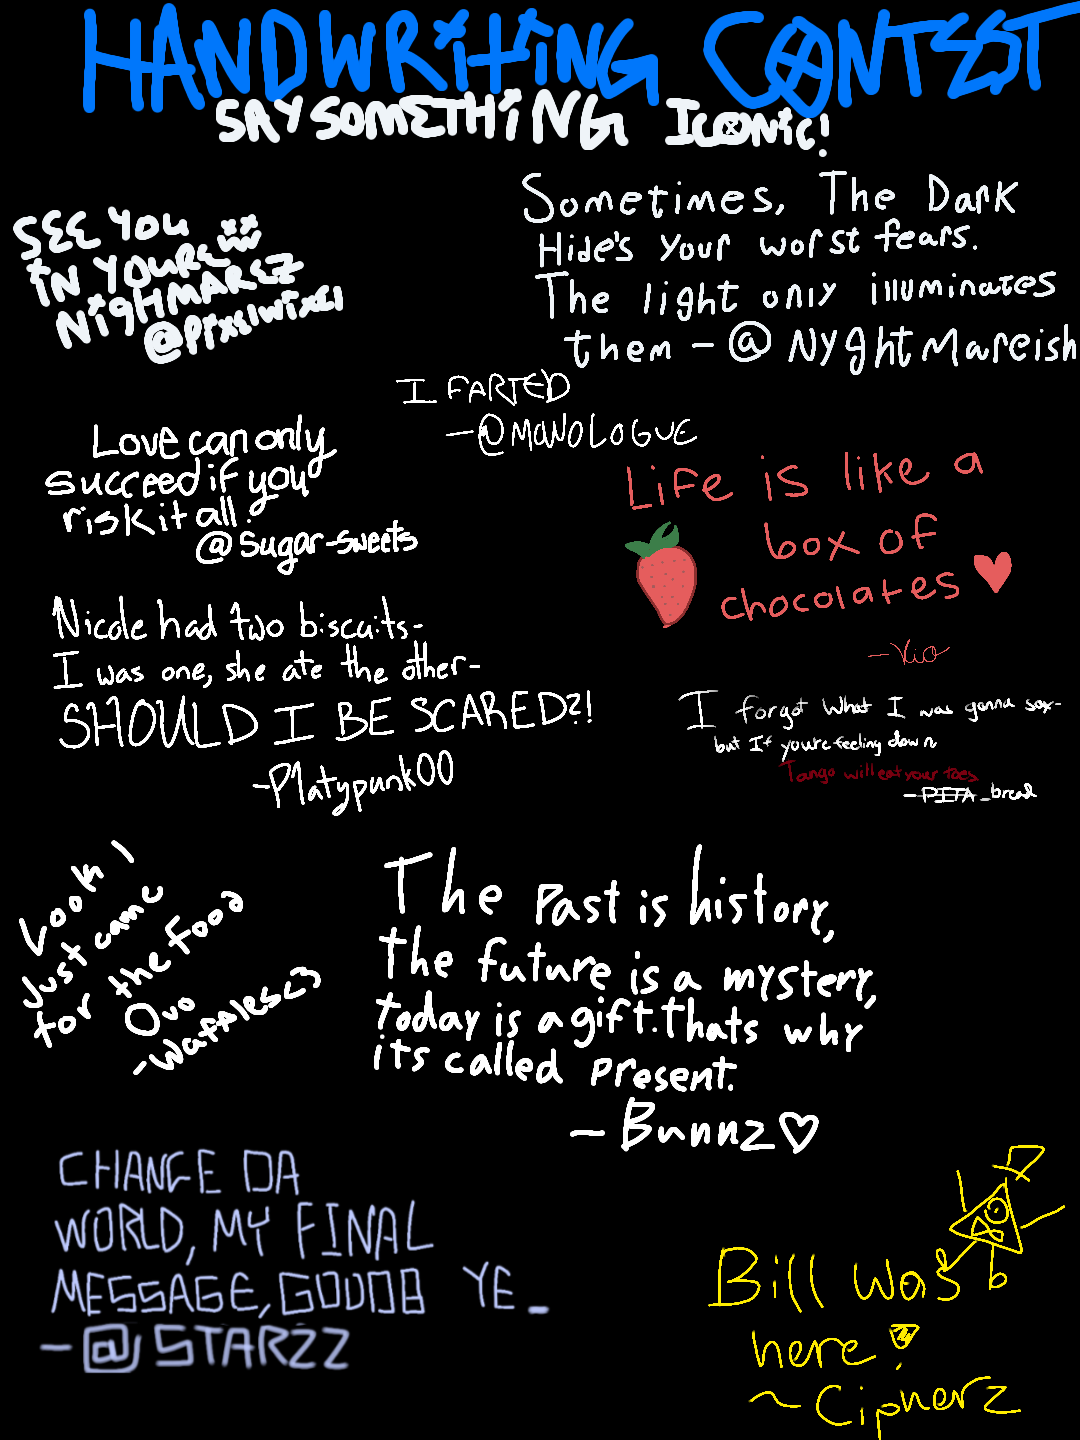 HANDWRITING CONTEST
SAY SOMETHING ICONIC!
SEE YOU
IN YOURE
NIGHTMAREZ
Sometimes, The Dark
Hide's Your worst fears.
The light only illuminates
them - @NyghtMareish
I FARTED
-@MONOLOGUE
Love can only
succeed if you
risk it all.
@Sugar-sweets
Life is like a
box of
chocolates ♥
-Xio
Nicole had two biscuits-
I was one, she ate the other-
SHOULD I BE SCARED?!
-Platypunk00
I forgot what I was gonna say-
but If youre feeling down
Tango will eat your toes
-PITA_bread
Look I
Just came
for the food
OvO
-Waffles<3
The Past is history,
the future is a mystery,
today is a gift. thats why
its called present.
- Bunnz♡
CHANGE DA
WORLD, MY FINAL
MESSAGE, GOUDB YE_
-@STARZZ
Bill was
here!
~Cipherz